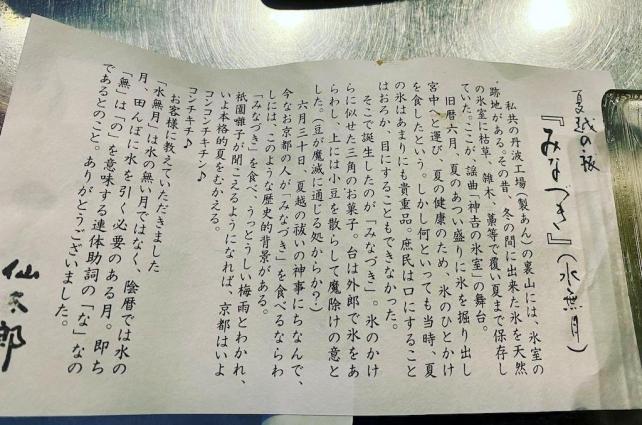 夏越の祓
『みなづき』(水無月)
私共の丹波工場(製あん)の裏山には、氷室の
跡地がある。その昔、冬の間に出来た氷を天然
の氷室に枯草、雑木、藁等で覆い夏まで保存し
ていた。ここが、謡曲「神吉の氷室」の舞台。
旧暦六月、夏のあつい盛りに氷を掘り出し
宮中へと運び、夏の健康のため、氷のひとかけ
を食したという。しかし何といっても当時、夏
の氷はあまりにも貴重品。庶民は口にすること
はおろか、目にすることもできなかった。
そこで誕生したのが「みなづき」。氷のかけ
らに似せた三角のお菓子。台は外郎で氷をあ
らわし、上には小豆を散らして魔除けの意と
した。(豆が魔滅に通じる処からか?)
六月三十日、夏越の祓いの神事にちなんで、
今なお京都の人が「みなづき」を食べるならわ
しには、このような歴史的背景がある。
「みなづき」を食べ、うっとうしい梅雨とわかれ、
祇園囃子が聞こえるようになれば、京都はいよ
いよ本格的夏をむかえる。
コンコンチキチン♪
コンチキチ♪
お客様に教えていただきました
「水無月」は水の無い月ではなく、陰暦では水の
月、田んぼに水を引く必要のある月。即ち
「無」は「の」を意味する連体助詞の「な」なの
であるとのこと。ありがとうございました。
仙太郎